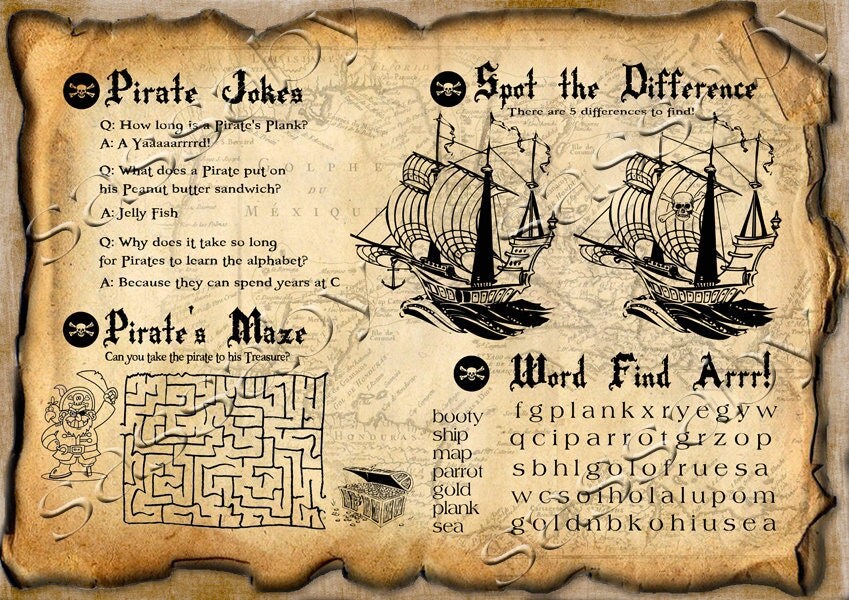 Pirate Jokes
Q: How long is a Pirate's Plank?
A: A Yaaaaarrrrd!
Q: What does a Pirate put on
his Peanut butter sandwich?
A: Jelly Fish
Q: Why does it take so long
for Pirates to learn the alphabet?
A: Because they can spend years at C
Spot the Difference
There are 5 differences to find!
GOLPHE
DU
MEXIQUE
HONDURAS
Pirate's Maze
Can you take the pirate to his Treasure?
Word Find Arrr!
booty
ship
map
parrot
gold
plank
sea
fgplankxryegyw
qciparrotgrzop
sbhlgolofruesa
wcsoiholalupom
goldnbkohiusea